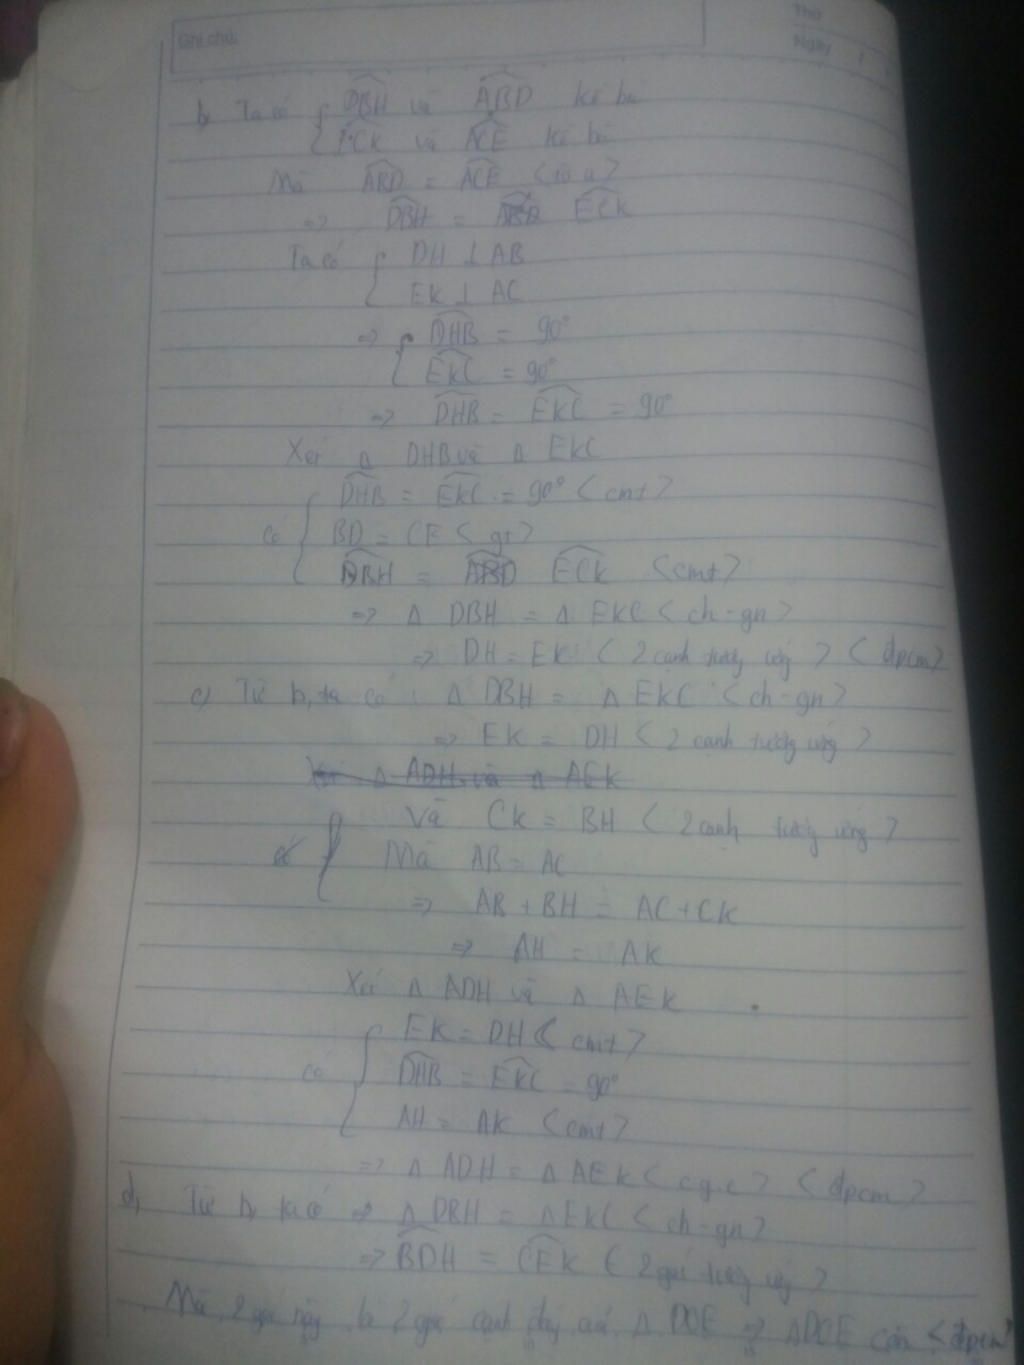 Ghi chú:
Thứ
Ngày / /
b, Ta có { DBH và ABD kề bù
ECK và ACE kề bù
Mà ABD = ACE < từ a >
=> DBH = ECK
Ta có { DH ⊥ AB
EK ⊥ AC
=> { DHB = 90°
EKC = 90°
=> DHB = EKC = 90°
Xét Δ DHB và Δ EKC
DHB = EKC = 90° < cmt >
có { BD = CE < gt >
DBH = ECK < cmt >
=> Δ DBH = Δ EKC < ch - gn >
=> DH = EK < 2 cạnh tương ứng > < đpcm >
c, Từ b, ta có : Δ DBH = Δ EKC < ch - gn >
=> EK = DH < 2 cạnh tương ứng >
Xét Δ ADH và Δ AEK
Và CK = BH < 2 cạnh tương ứng >
có { Mà AB = AC
=> AB + BH = AC + CK
=> AH = AK
Xét Δ ADH và Δ AEK
EK = DH < cmt >
có { DHB = EKC = 90°
AH = AK < cmt >
=> Δ ADH = Δ AEK < c.g.c > < đpcm >
d, Từ b, ta có => Δ DBH = Δ EKC < ch - gn >
=> BDH = CEK < 2 góc tương ứng >
Mà 2 góc này là 2 góc cạnh đáy của Δ DOE => Δ DOE cân < đpcm >